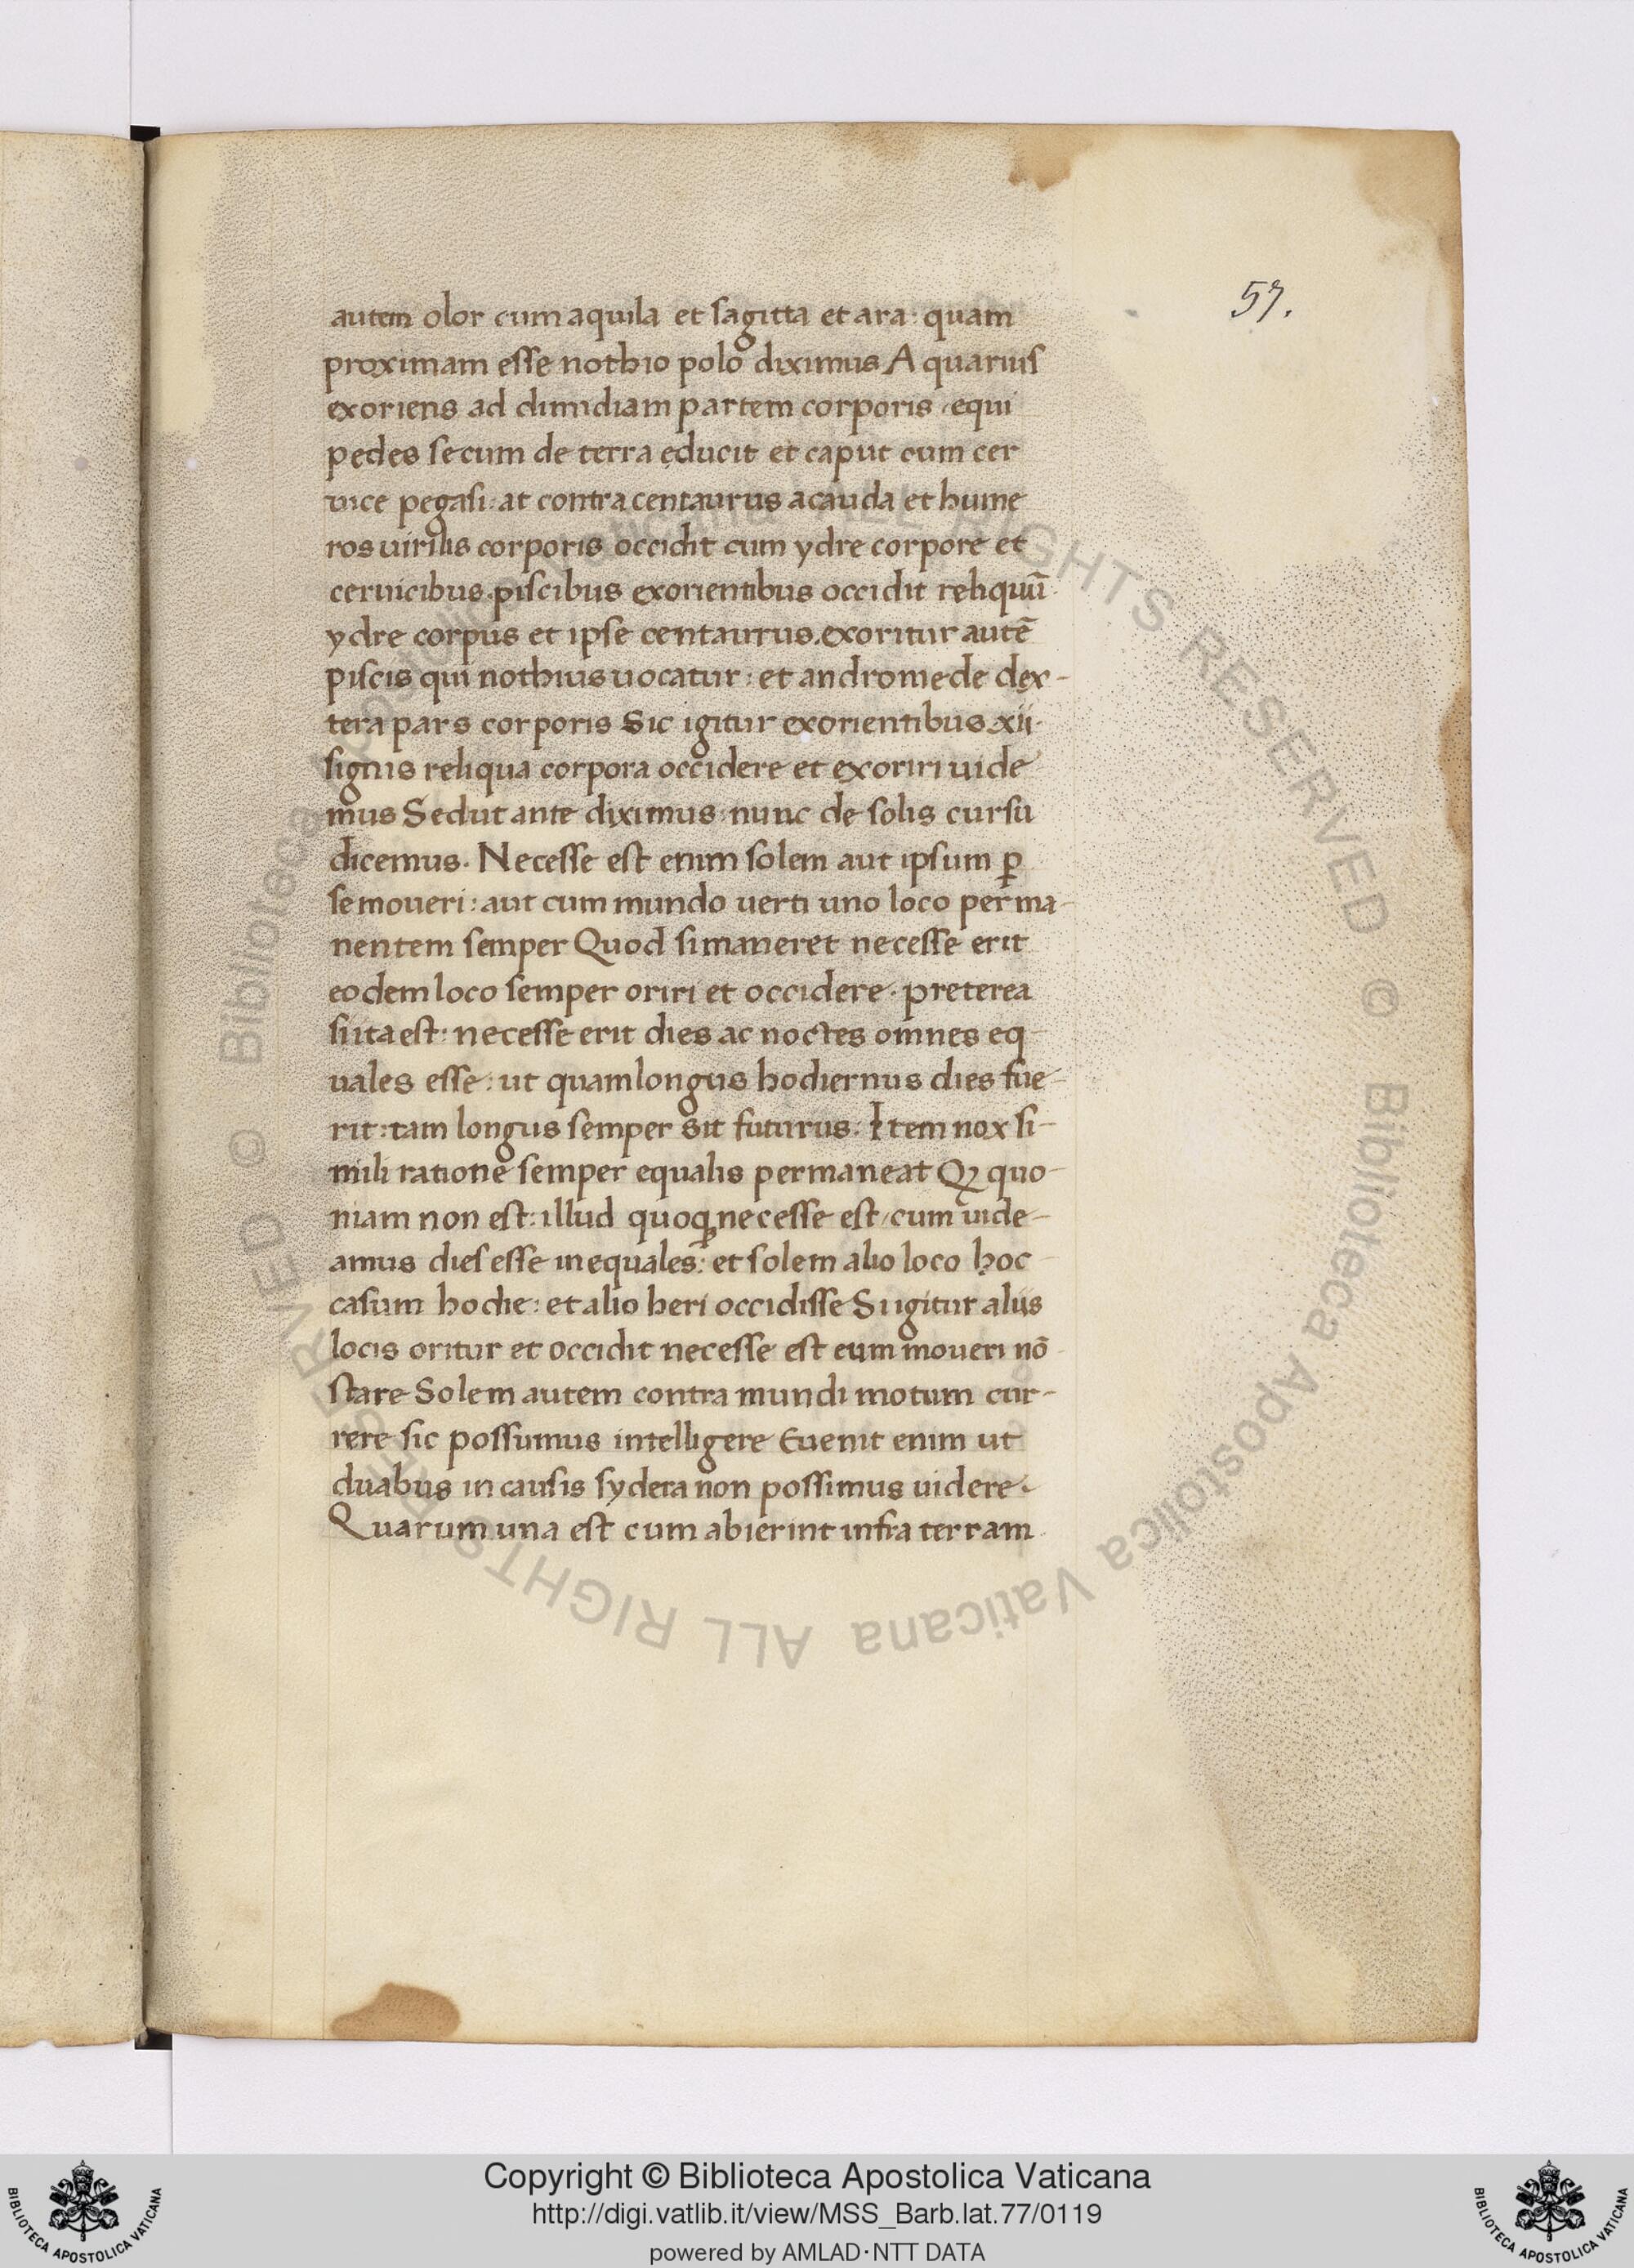 57.
autem olor cum aquila et sagitta et ara: quam
proximam esse nothio polo diximus Aquarius
exoriens ad dimidiam partem corporis, equi
pedes secum de terra educit et caput cum cer
uice pegasi: at contra centaurus a cauda et hume
ros uirilis corporis occidit cum ydre corpore et
ceruicibus. piscibus exorientibus occidit reliquū
ydre corpus et ipse centaurus. exoritur autē
piscis qui nothius uocatur: et andromede dex-
tera pars corporis Sic igitur exorientibus xii.
signis reliqua corpora occidere et exoriri uide
mus Sed ut ante diximus: nunc de solis cursu
dicemus. Necesse est enim solem aut ipsum ꝑ
se moueri: aut cum mundo uerti uno loco perma-
nentem semper Quod si maneret necesse erit
eodem loco semper oriri et occidere. preterea
si ita est: necesse erit dies ac noctes omnes eq
uales esse: ut quam longus hodiernus dies fue-
rit: tam longus semper sit futurus. Item nox si-
mili ratione semper equalis permaneat Qꝫ quo-
niam non est: illud quoqꝫ necesse est, cum uide-
amus dies esse inequales: et solem alio loco hoc
casum hodie: et alio heri occidisse Si igitur aliis
locis oritur et occidit necesse est eum moueri nō
stare Solem autem contra mundi motum cur-
rere sic possumus intelligere Euenit enim ut
duabus in causis sydera non possimus uidere.
Quarum una est cum abierint infra terram
© Biblioteca Apostolica Vaticana ALL RIGHTS RESERVED © Biblioteca Apostolica Vaticana ALL RIGHTS RESERVED
Copyright © Biblioteca Apostolica Vaticana
http://digi.vatlib.it/view/MSS_Barb.lat.77/0119
powered by AMLAD·NTT DATA
BIBLIOTECA APOSTOLICA VATICANA
BIBLIOTECA APOSTOLICA VATICANA